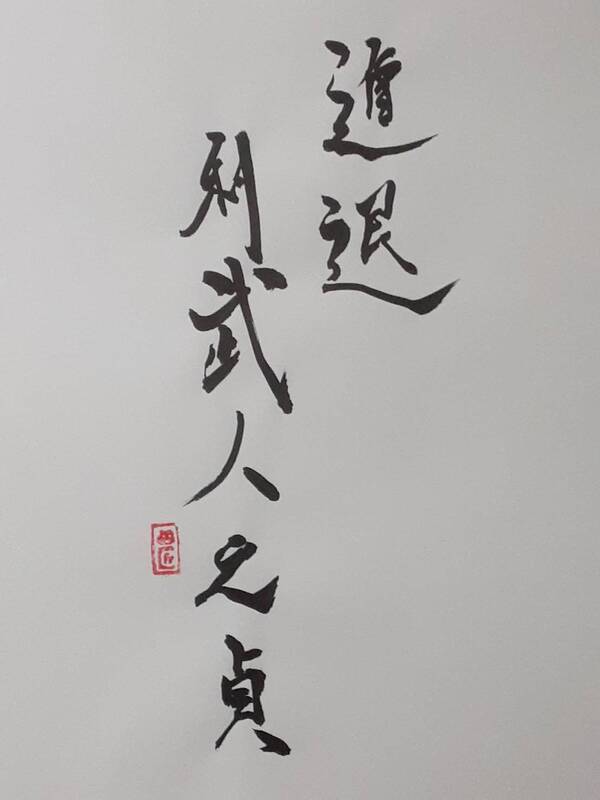 進退
利武人之貞